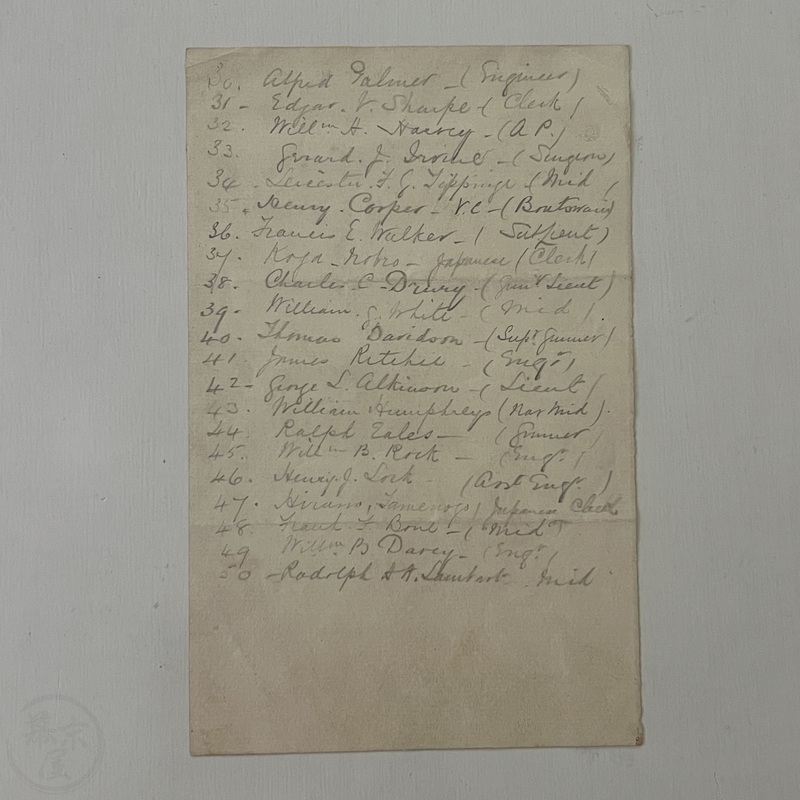 30. Alfred Palmer - (Engineer)
31 - Edgar. V. Sharpe - (Clerk)
32. Willm H. Harvey - (A P.)
33. Gerard. J. Irvine - (Surgeon)
34. Leicester. F. G. Tippinge - (Mid)
35. Henry. Cooper - V.C - (Boatswain)
36. Francis E. Walker - (
37. - Japanese (Clerk)
38. Charles. C - Drury. - Lieut)
39 - William. J. White - (Mid).
40. Thomas Davidson - (Supt. Gunner)
41. James Ritchie - (Engr)
42 - George L. Atkinson - (Lieut)
43. William Humphreys (Nav Mid).
44. Ralph Eales - (Gunner)
45. Willm B. Rock - (Engr.)
46. Henry. J. Lock (Asst Engr.)
47. Japanese Clerk
48. Frank F Bone - (Mid)
49 Willm B Darey - (Engr.)
50 - Rodolph Lambart. Mid